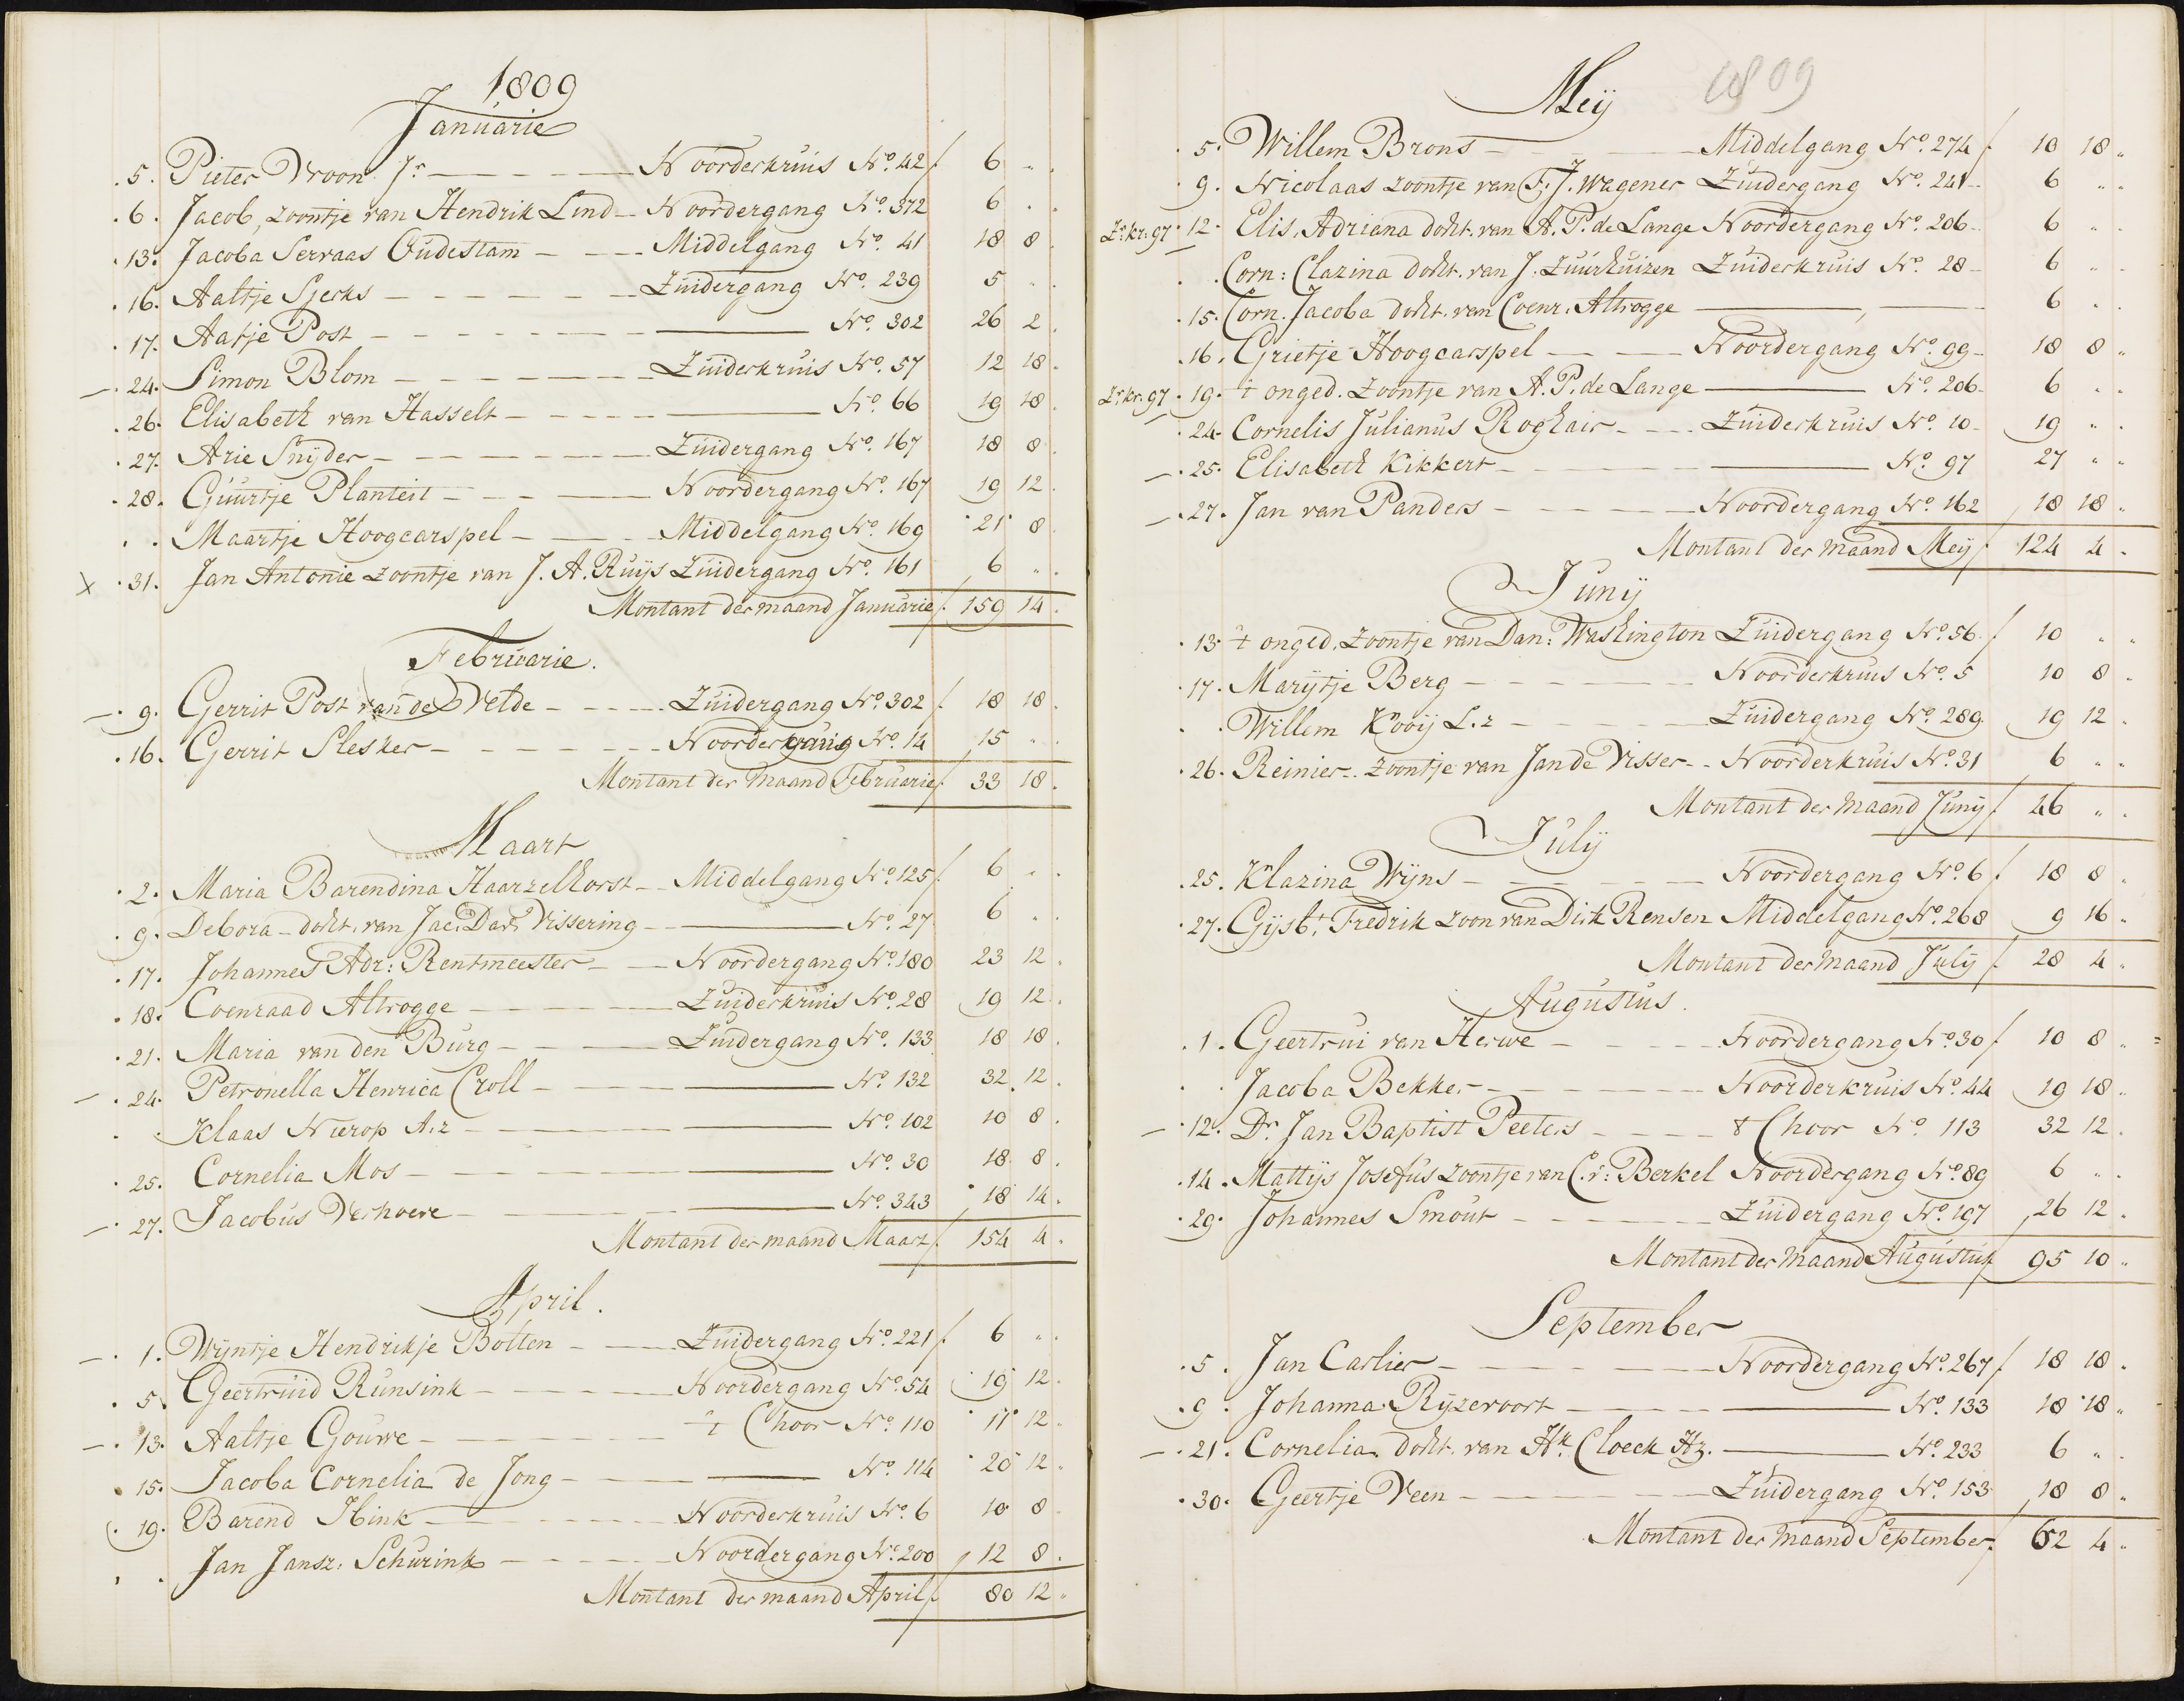 1809
Januarie
5. Pieter Vroon Jr. Noorderkruis No. 42 f 6 " .
6. Jacob, zoontje van Hendrik Lind Noordergang No. 372 6 . .
13. Jacoba Servaas Oudestam Middelgang No. 41 18 8 .
16. Aaltje Sjerks Zuidergang No. 239 5 " .
17. Aatje Post No. 302 26 2 .
— 24. Simon Blom Zuiderkruis No. 57 12 18 .
26. Elisabeth van Hasselt No. 66 19 18 .
27. Arie Snÿder Zuidergang No. 167 18 8
28. Guurtje Planteit Noordergang No. 167 19 12 .
. . Maartje Hoogcarspel Middelgang No. 169 21 8
x 31. Jan Antonie zoontje van J. A. Ruijs Zuidergang No. 161 6 " .
Montant der maand Januarie f. 159 14 .
Februarie.
— 9. Gerrit Post van de Velde Zuidergang No. 302 f. 18 18 .
16. Gerrit Slesker No. 14 15 " .
Montant der maand Februarie f. 33 18 .
Maart
2. Maria Barendina Haarzelhorst Middelgang No. 125 f 6 " .
9. Debora docht. van Jac. Dav. Vissering No. 27 6 " .
17. Johannes Adr: Rentmeester Noordergang No. 180 23 12 .
18. Coenraad Altrogge Zuiderkruis No. 28 19 12 .
21. Maria van den Burg Zuidergang No. 133 18 18 .
— 24. Petronella Henrica Croll No. 132 32 12 .
. . Klaas Nierop A.z No. 102 10 8 .
25. Cornelia Mos No. 30 18 8 .
— 27. Jacobus Verhoeve No. 343 18 14 .
Montant der maand Maart f. 154 4 .
April.
— 1. Wijntje Hendrikje Bolten Zuidergang No. 221 f 6 " .
5. Geertruid Runsink Noordergang No. 54 19 12 .
— 13. Aaltje Gouwe 't Choor No. 110 11 12 "
15. Jacoba Cornelia de Jong No. 114 20 12 "
19. Barend Ibink Noorderkruis No. 6 10 8
. . Jan Jansz. Schurink Noordergang No. 200 12 8 .
Montant der maand April f. 80 12 "
Meij 1809
5. Willem Brons Middelgang No. 274 f 10 18 "
9. Nicolaas zoontje van F. J. Wagener Zuidergang No. 241 6 " .
Zr. kr. 97 12. Elis. Adriana docht. van A. P. de Lange Noordergang No. 206 6 " .
. . Corn: Clazina docht. van J. Zuurhuizen Zuiderkruis No. 28 6 " .
15. Corn. Jacoba docht. van Coenr. Altrogge 6 " .
16. Grietje Hoogcarspel Noordergang No. 99 18 8 "
Zr. kr. 97 19. 't onged. zoontje van A. P. de Lange No. 206 6 " .
24. Cornelis Julianus Roghair Zuiderkruis No. 10 19 " .
— 25. Elisabeth Kikkert No. 97 27 " "
— 27. Jan van Panders Noordergang No. 162 18 18 "
Montant der maand Meij f. 124 4 .
Junij
13. 't onged. zoontje van Dan: Washington Zuidergang No. 56 f 10 " "
17. Marijtje Berg Noorderkruis No. 5 10 8 "
. . Willem Kooij L.z Zuidergang No. 289 19 12 .
26. Reinier zoontje van Jan de Visser Noorderkruis No. 31 6 " "
Montant der maand Junij f. 46 " .
Julij
25. Klazina Wijns Noordergang No. 6 f. 18 8 "
27. Gijsbt. Fredrik zoon van Dirk Rensen Middelgang No. 268 9 16 "
Montant der maand Julij f. 28 4 "
Augustus.
1. Geertrui van Herwe Noordergang No. 30 f 10 8 "
. . Jacoba Bekker Noorderkruis No. 44 19 18 "
— 12. Dr. Jan Baptist Peeters 't Choor No. 113 32 12 .
14. Mattijs Josefus zoontje van C. v: Berkel Noordergang No. 89 6 " .
29. Johannes Smout Zuidergang No. 197 26 12 .
Montant der maand Augustus f 95 10 "
September
5. Jan Carlier Noordergang No. 267 f. 18 18 .
9. Johanna Rijzevoort No. 133 18 18 "
— 21. Cornelia docht. van Hk. Cloeck Hz. No. 233 6 " .
30. Geertje Veen Zuidergang No. 153 18 8 "
Montant der maand September f. 62 4 "